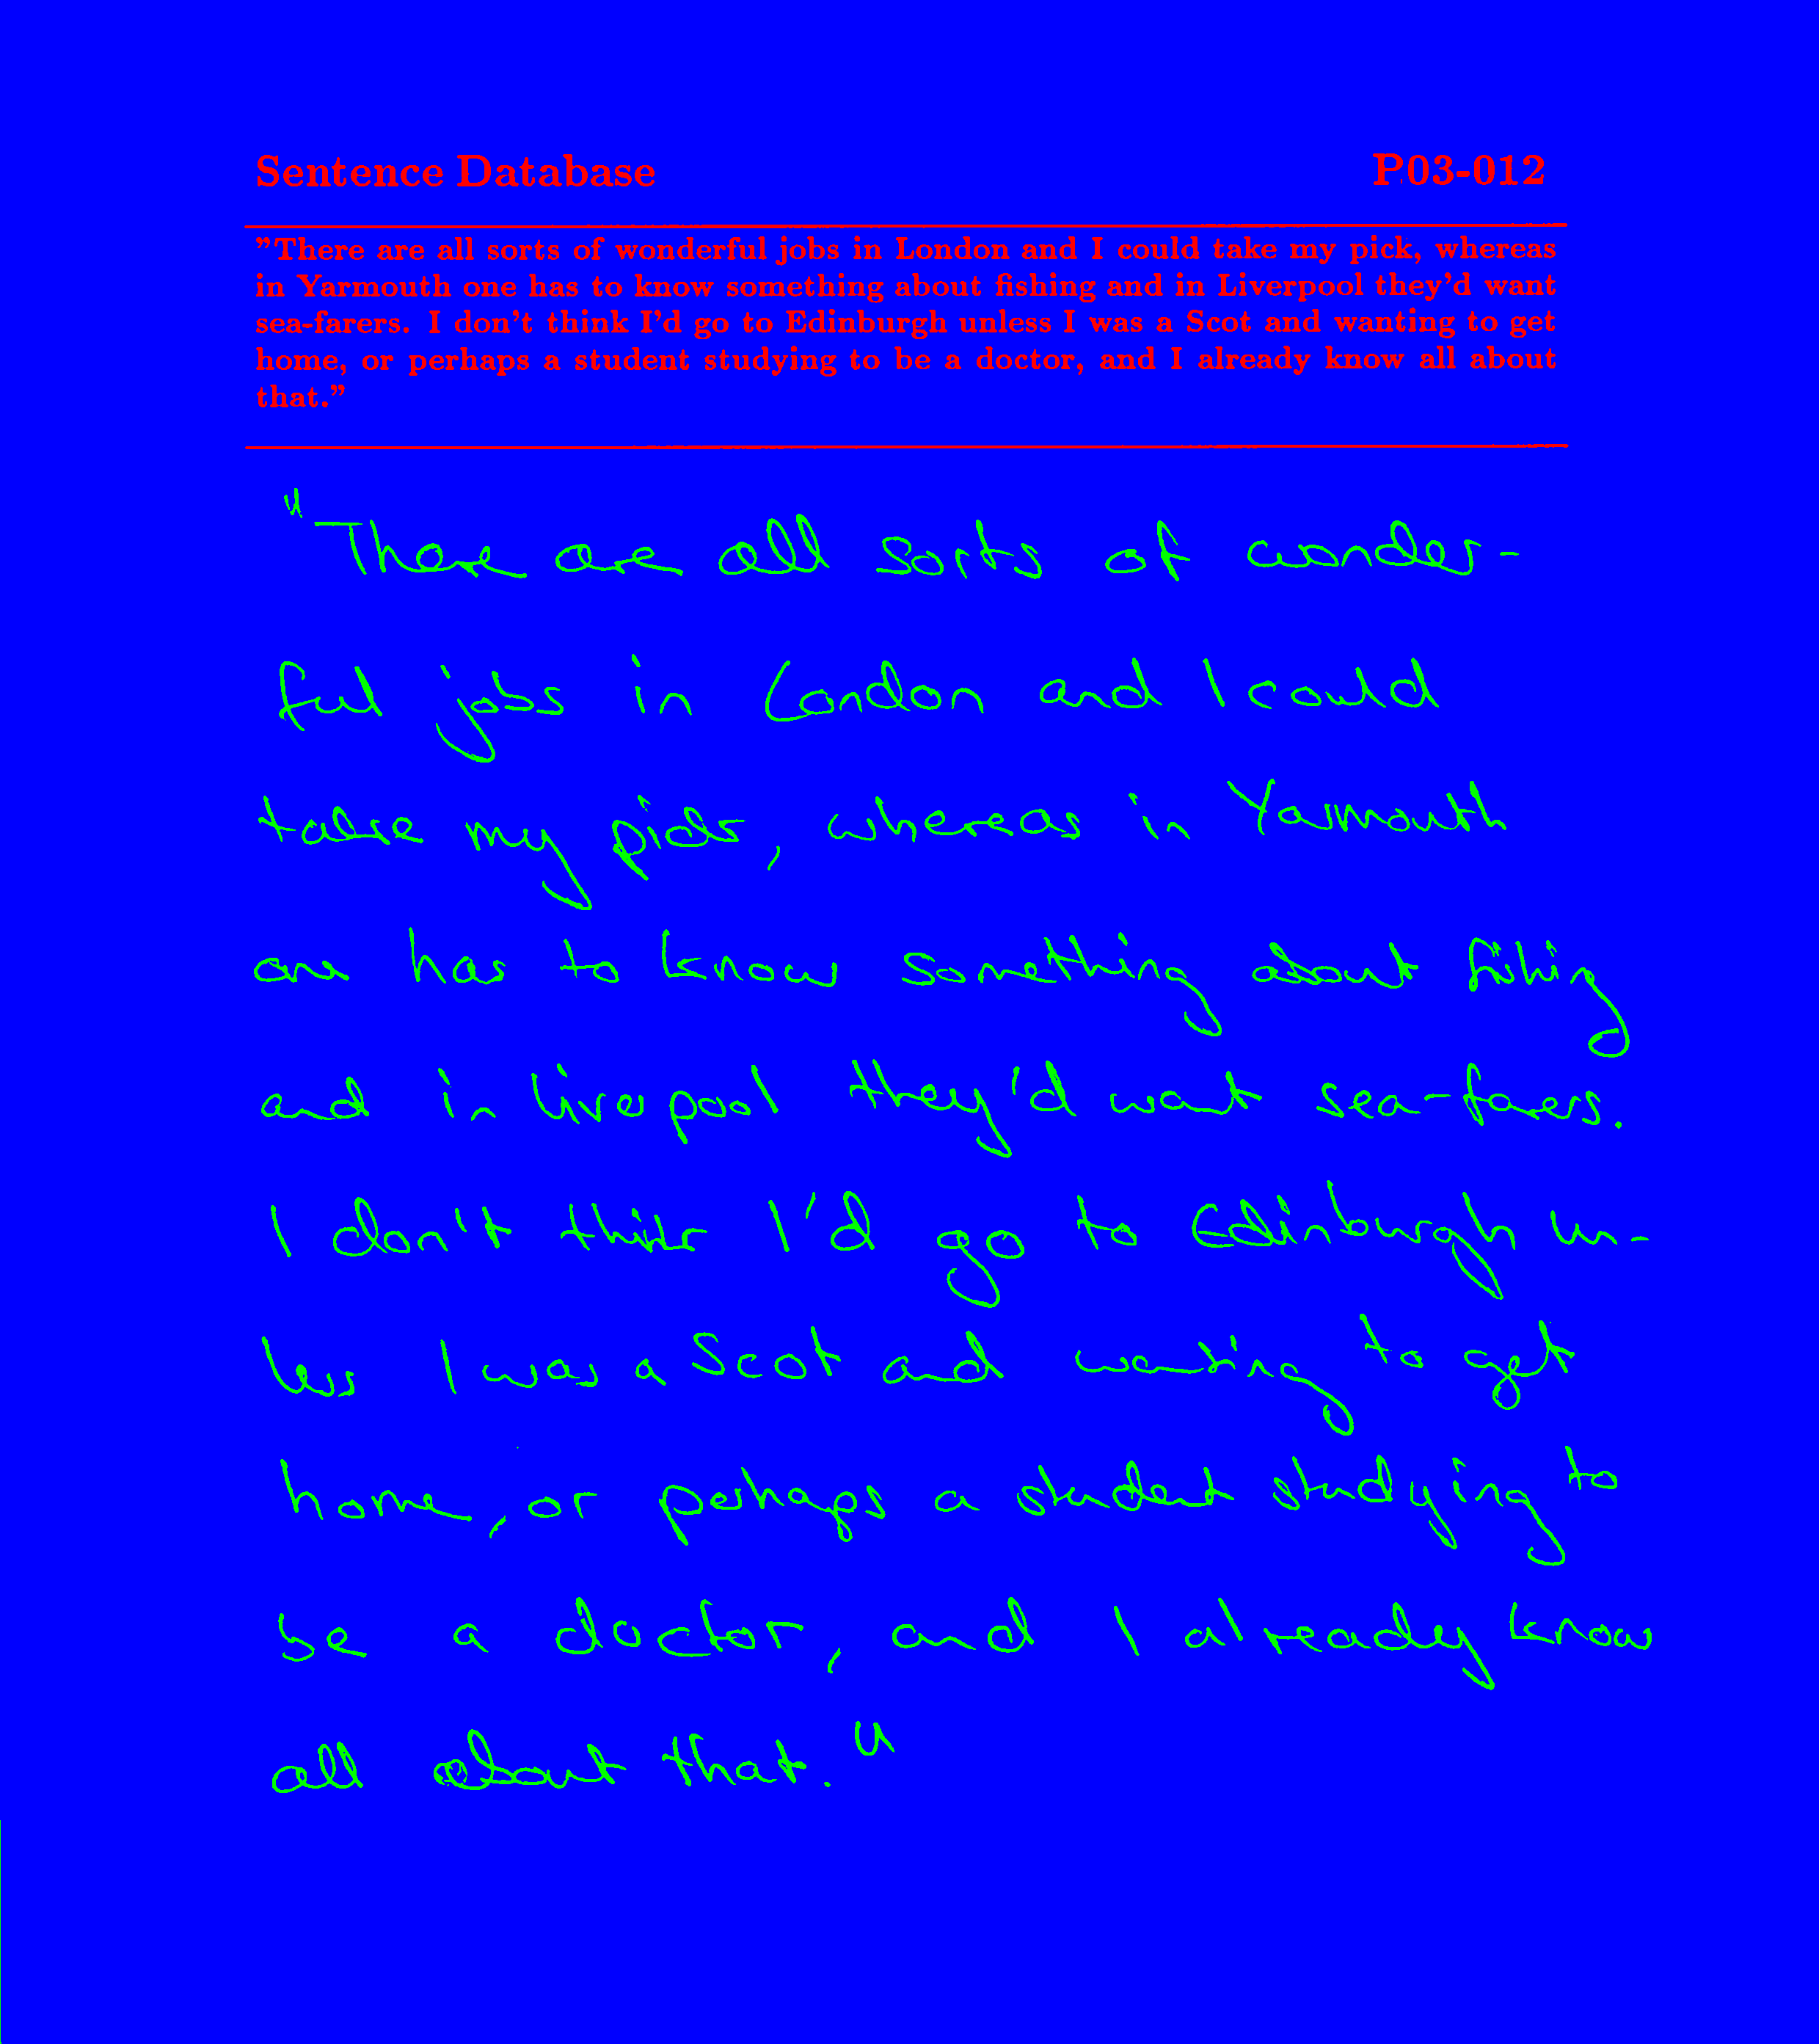 Sentence Database P03-012
"There are all sorts of wonderful jobs in London and I could take my pick, whereas
in Yarmouth one has to know something about fishing and in Liverpool they'd want
sea-farers. I don't think I'd go to Edinburgh unless I was a Scot and wanting to get
home, or perhaps a student studying to be a doctor, and I already know all about
that."
"There are all sorts of wonder-
ful jobs in London and I could
take my pick, whereas in Yarmouth
one has to know something about fishing
and in Liverpool they'd want sea-farers.
I don't think I'd go to Edinburgh un-
less I was a Scot and wanting to get
home, or perhaps a student studying to
be a doctor, and I already know
all about that."